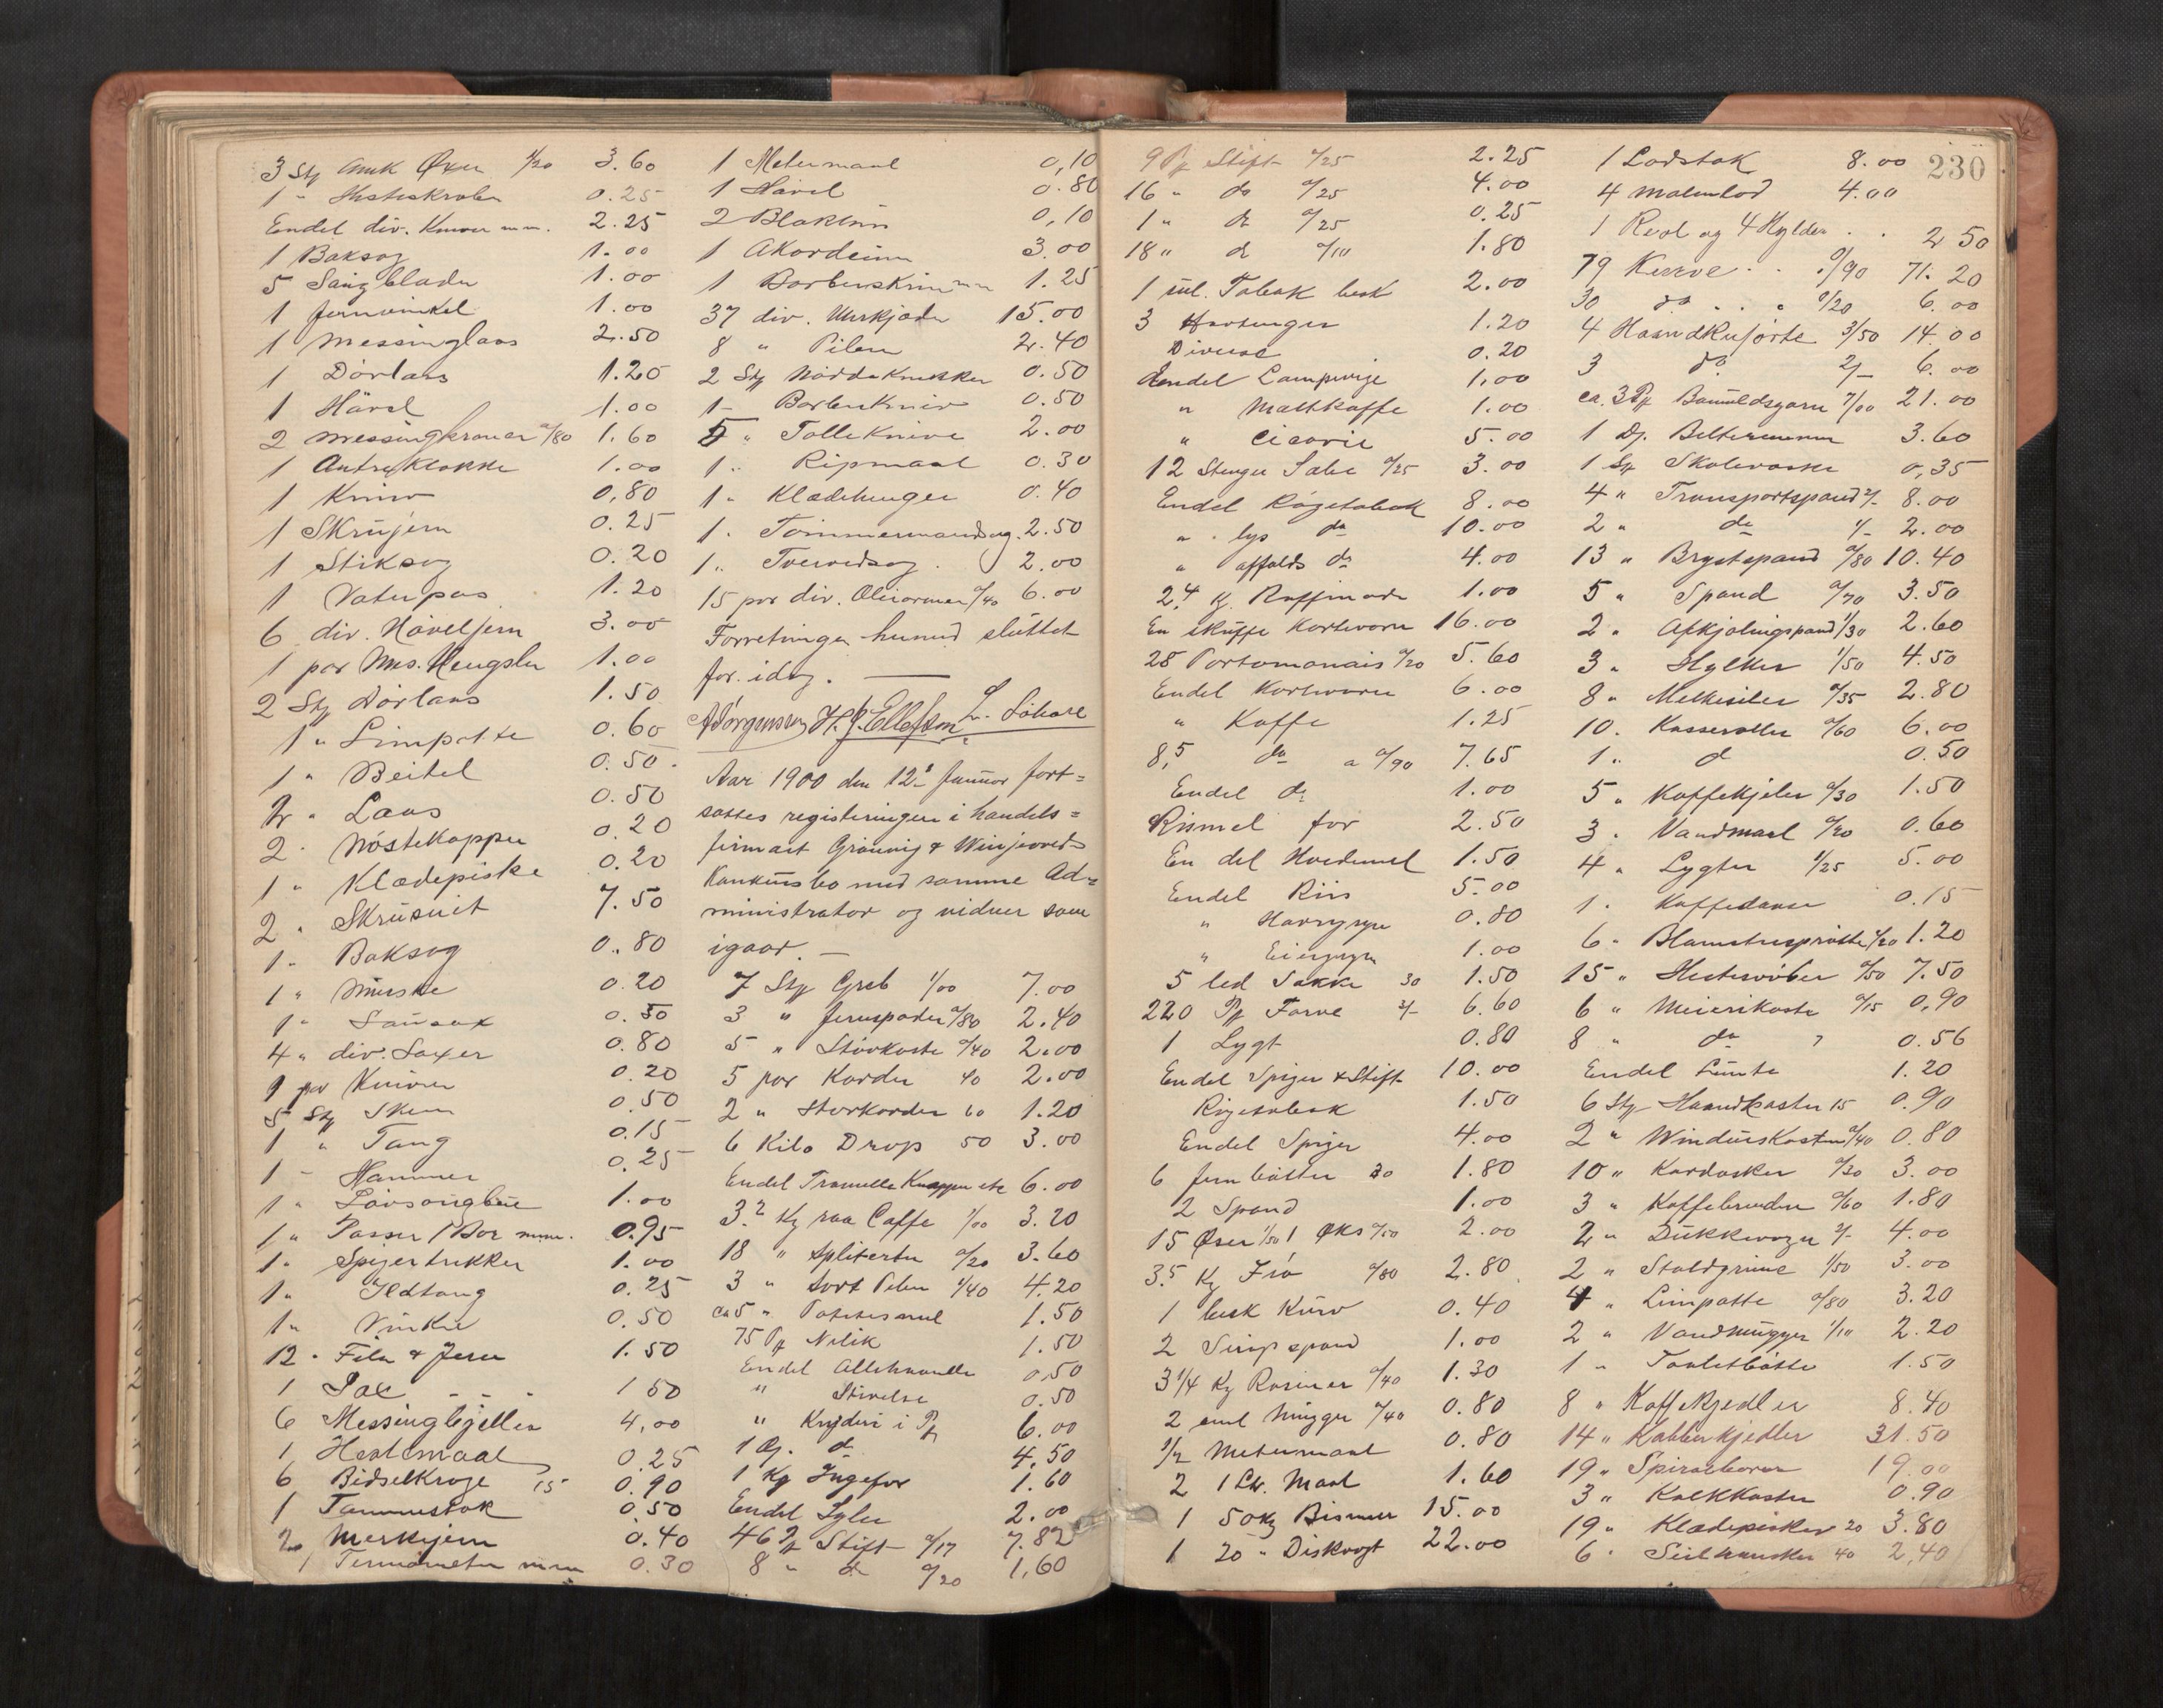 3 Stk Amk Øxer 1/20 3.60
1 " Hesteskraber 0.25
Endel div. Kniver m.m. 2.25
1 Baksag 1.00
5 Saugblader 1.00
1 Jernvinkel 1.00
1 Messinglaas 2.50
1 Dørlaas 1.20
1 Hövel 1.00
2 Messingkraner a/80 1.60
1 Antreklokke 1.00
1 Kniv 0,80
1 Skrujern 0.25
1 Stiksag 0.20
1 Vaterpas 1.20
6 div. Høveljern 3.00
1 par Mes. Hengsler 1.00
2 Stk Dørlaas 1.50
1 " Limpotte 0.60
1 " Beitel 0.50
2 " Laas 0.50
2 " Nøstekopper 0.20
1 " Klædepiske 0.20
2 " Skrustik 7.50
1 " Baksag 0.80
1 " 0.20
1 " Sausax 0.50
4 " div. Saxer 0.80
9 par Kniver 0.20
5 Stk Skeer 0.50
1 " Tang 0.15
1 " Hammer 0.25
1 " Løvsaugbue 1.00
1 " Passer 1 Bor m.m. 0.95
1 " Spigertrekker 1.00
1 " Ildtang 0.25
1 " Vinkel 0.50
12 " File & Jern 1.50
1 Sax 1 50
6 Messingbjeller 4,00
1 Hestemaal 0.25
6 Bidselkroge 15 0.90
1 Tommestok 0.50
2 Merkejern 0.40
1 Termometer m.m 0.30
1 Metermaal 0,10
1 Hövel 0.80
2 Blaktin 0,10
1 Akordeium 3.00
1 Barberskrin m.m 1.25
37 div. Uhrkjæder 15.00
8 " Piber 2.40
2 Stk Nøddeknekker 0.50
1 - Barberkniv 0.50
5 " Tolleknive 2.00
1 " Ripmaal 0.30
1 " Klædehenger 0.40
1 " Tømmermandsag. 2.50
1 " Tvervedsag 2.00
15 par div. Oliearmer a/40 6.00
Forretningen hermed sluttet
for idag. —
A Jørgensen H. J. Ellefsen L. Löhare
Aar 1900 den 12te Januar fort=
sattes registeringen i handels=
firmaet Grønvig & Winjeveds
Konkursbo med samme Ad=
ministrator og vidner som
igaar. —
7 Stk Greb 1/00 7.00
3 " Jernspader a/80 2.40
5 " Støvkoste a/40 2.00
5 par Karder 40 2.00
2 " Storkarder 60 1.20
6 Kilo Drops 50 3.00
Endel Tranelle Knapper etc 6.00
3.2 Kg raa Caffe 1/00 3.20
18 " Spliterter a/20 3.60
3 " Sort Peber 1/40 4.20
ca 5 " Potetesmel 1.50
75 Pk Nelik 1.50
Endel Allehaande 0,50
" Stivelse 0.50
" Kryderi i Pk 6.00
1 Dj. do 4.50
1 Kg Ingefær 1.60
Endel Syler 2.00
46 Pk Stift a/17 7.82
8 " do a/20 1,60
9 Pk Stift a/25 2.25
16 " do a/25 4.00
1 " do a/25 0.25
18 " do a/10 1.80
1 Tobak besk 2.00
3 1.20
Diverse 0.20
Endel Lampevige 1,00
" Maltkaffe 1.00
" Cicorie 5.00
12 Stenger Sæbe a/25 3.00
Endel Røgetobak 8.00
" lys do 10.00
" affalds do 4.00
2,4 Kg. Raffinade 1.00
En skuffe Kortevarer 16.00
28 Portomonais a/20 5.60
Endel Kortvarer 6.00
" Kaffe 1.25
8,5 do a a/90 7.65
Endel do 1.00
Rismel for 2.50
En del Hvedemel 1.50
Endel Riis 5.00
" Havregryn 0.80
" 1.00
5 led Sække 30 1.50
220 Pk Farve 3/- 6.60
1 Lygt 0.80
Endel Spiger & Stift 10.00
Røgetobak 1.50
Endel Spiger 4.00
6 Jernbøtter 30 1.80
2 Spand 1.00
15 Øser 1/50 1 Øks a/50 2.00
3.5 Kg Frø a/80 2.80
1 besk Kurv 0.40
2 Sirupspand 1.00
3 1/4 Kg Rosiner a/40 1.30
2 eml Mugger a/40 0.80
1/2 Metermaal 0.80
2 1 Ltr. Maal 1.60
1 50 Kg Bismer 15.00
1 20 " Diskvægt 22.00
230
1 Lodstok 8.00
4 Malmlod 4.00
1 Reol og 4 Hylder . . 2 50
79 Kurve . . a/90 71.20
30 do . . a/20 6.00
4 Haandkuførte 3/50 14.00
3 do 2/- 6.00
ca. 3 Pk Bomuldsgarn 7/00 21.00
1 Dj. Belteremmer 3.60
1 Stk Skoleveske 0,35
4 " Transportspand 2/- 8.00
2 " do 1/- 2.00
13 " Brystspand a/80 10.40
5 " Spand a/70 3.50
2 " Afkjølingspand 1/30 2.60
3 " Hylker 1/50 4.50
8 " Melkesiler a/35 2.80
10 " Kasseroller a/60 6.00
1 " do 0.50
5 " Kaffekjeler a/30 1.50
3 " Vandmaal a/20 0.60
4 " Lygter 1/25 5.00
1 " Kaffedaase 0.15
6 " Blomstersprøtte a/20 1.20
15 " a/50 7.50
6 " Meierikoste a/15 0,90
8 " do 7 0.56
Endel Lunte 1.20
6 Stk Haandkoster 15 0.90
2 " Winduskoster a/40 0.80
10 " Kardasker a/30 3.00
3 " Kaffebrender a/60 1.80
2 " Dukkevogn 2/- 4.00
2 " Staldgrime 1/50 3.00
4 " Limpotte a/80 3.20
2 " Vandmugger 1/10 2.20
1 " Toaletbøtte 1.50
8 " Kaffekjedler 8.40
14 " Kobberkjedler 31.50
19 " Spiralborer 19.00
3 " Kalkkoster 0.90
19 " Klædepisker 20 3.80
6 " Seilhansker 40 2,40